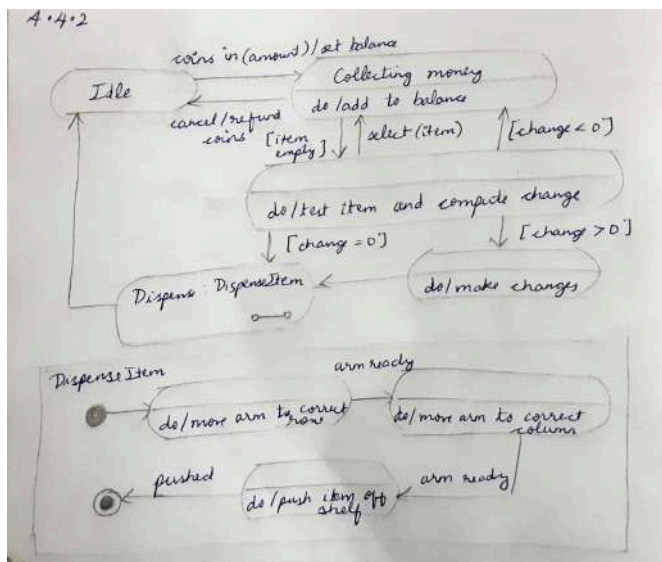 4.4.2
coins in (amount)/set balance
Idle
Collecting money
do/add to balance
cancel/refund
coins
[item
empty]
select (item)
[change < 0]
do/test item and compute change
[change = 0]
[change > 0]
Dispense : DispenseItem
do/make changes
DispenseItem
arm ready
do/move arm to correct
row
do/move arm to correct
column
pushed
arm ready
do/push item off
shelf